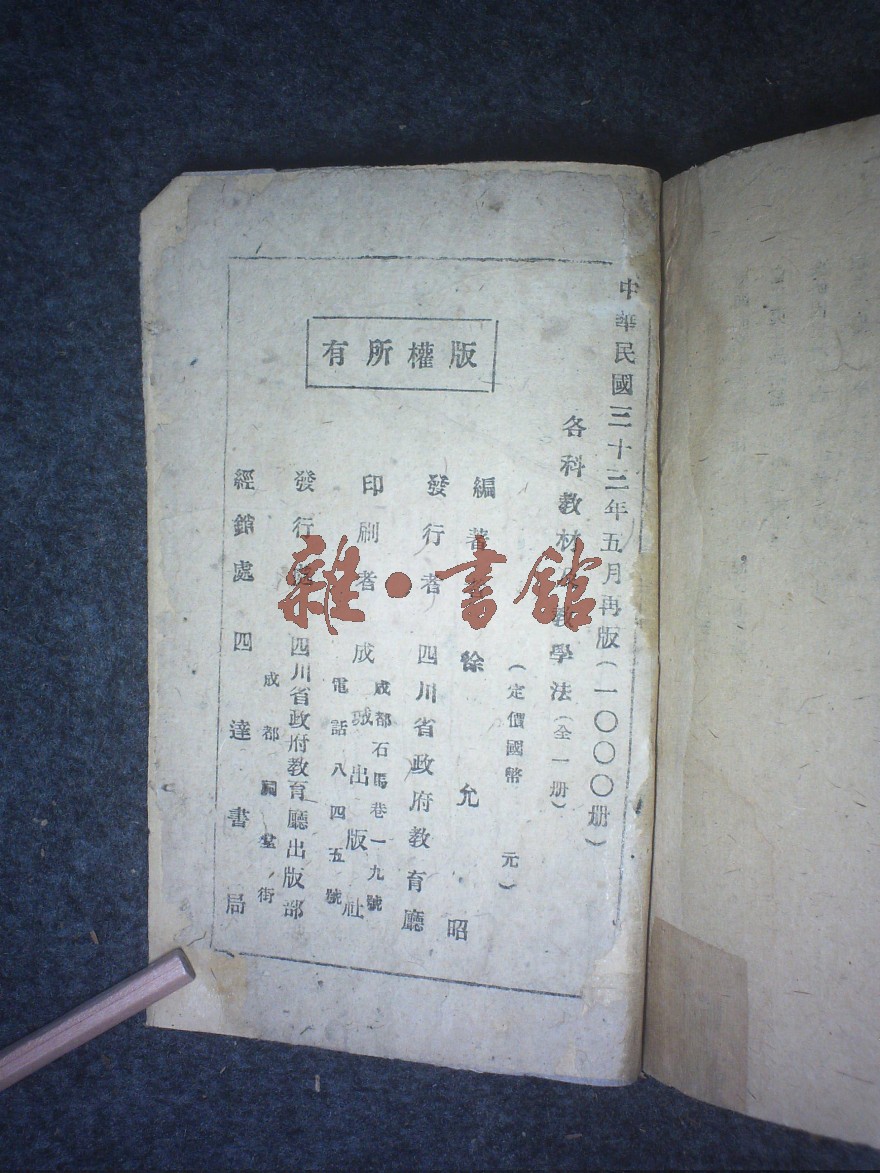 中華民國三十三年五月再版(一〇〇〇册)
各科教材及教學法(全一册)
(定價國幣 元)
版權所有
編著 徐允昭
發行者 四川省政府教育廳
印刷者 成城出版社
成都石馬巷一九號
電話八四五號
發行 四川省政府教育廳出版部
經銷處 四達書局
成都祠堂街
雜·書館